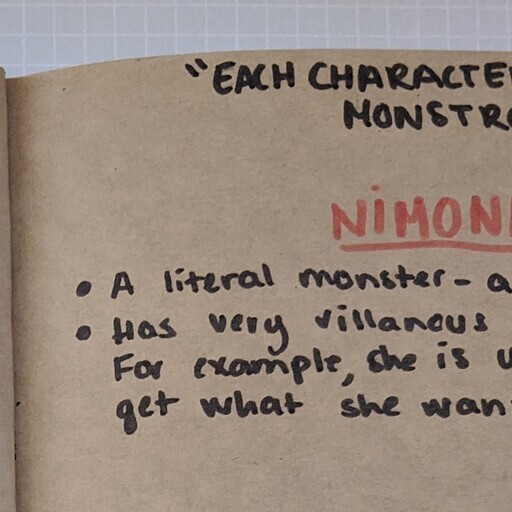 "EACH CHARACTE
MONSTR
NiMON
• A literal monster - a
• Has very villanous
For example, she is u
get what she wan